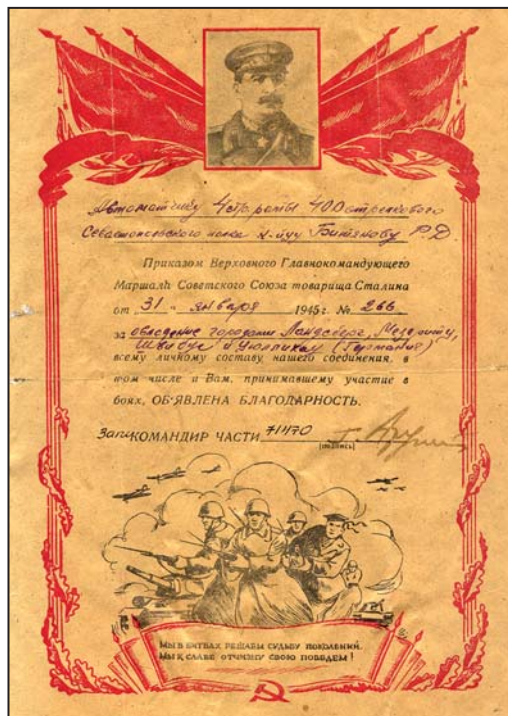 Автоматчику 4 стр. роты 400 стрелкового
Севастопольского полка Битякову Р.Д
Приказом Верховного Главнокомандующего
Маршала Советского Союза товарища Сталина
от „31" января 1945 г. № 266
за овладение городами Ландсберг, Мезеритц,
Швибус и Цюллихау (Германия)
всему личному составу нашего соединения, в
том числе и Вам, принимавшему участие в
боях, ОБ'ЯВЛЕНА БЛАГОДАРНОСТЬ.
КОМАНДИР ЧАСТИ 71470
(подпись)
МЫ В БИТВАХ РЕШАЕМ СУДЬБУ ПОКОЛЕНИЙ,
МЫ К СЛАВЕ ОТЧИЗНУ СВОЮ ПОВЕДЕМ!